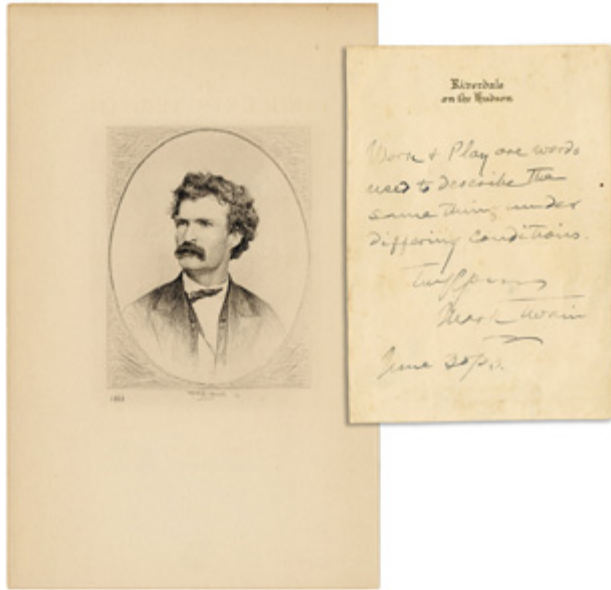 Riverdale
on the Hudson
Work & Play are words
used to describe the
same thing under
differing conditions.
Truly Yours
Mark Twain
June